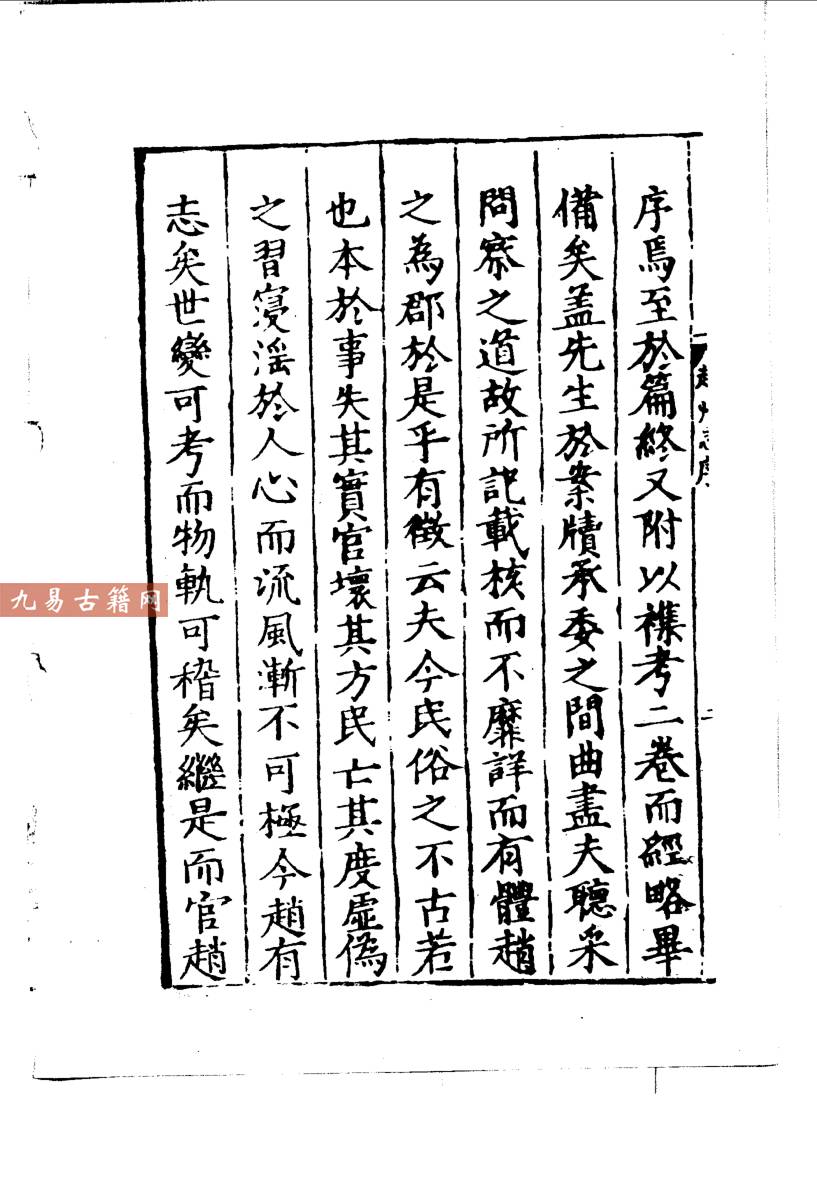 趙州志序
二
序焉至於篇終又附以襍考二卷而經略畢
備矣盖先生於案牘承委之間曲盡夫聽采
問察之道故所記載核而不靡詳而有體趙
之為郡於是乎有徵云夫今民俗之不古若
也本於事失其實官壞其方民亡其度虛偽
之習寖淫於人心而流風漸不可極今趙有
志矣世變可考而物軌可稽矣繼是而官趙
九易古籍网